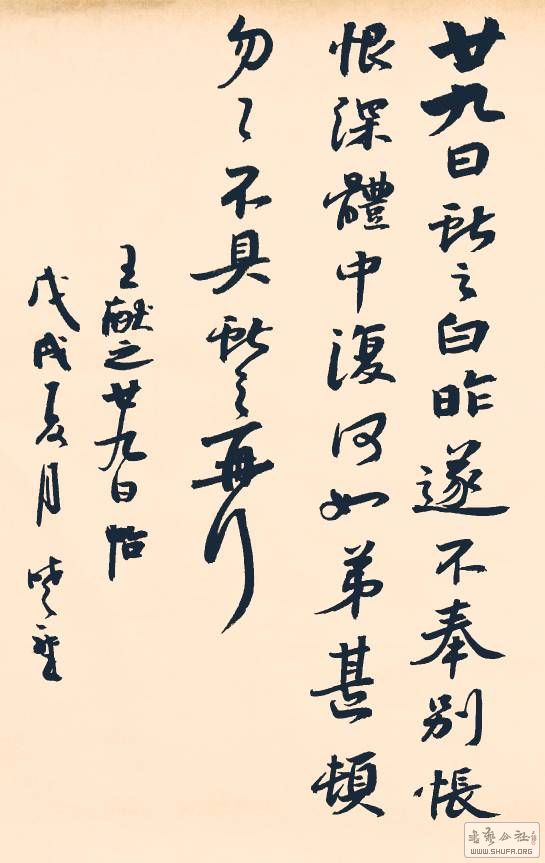 廿九日獻之白昨遂不奉別悵
恨深體中復何如弟甚頓
匆〻不具獻之再拜
王献之廿九日帖
戊戌夏月
书艺公社
WWW.SHUFA.ORG